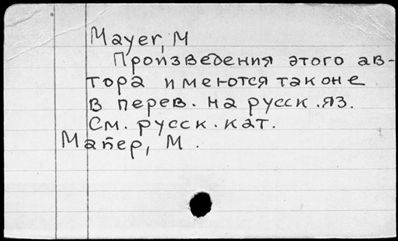 Mayer, M
Произведения этого ав-
тора имеются также
в перев. на русск. яз.
См. русск. кат.
Майер, М.